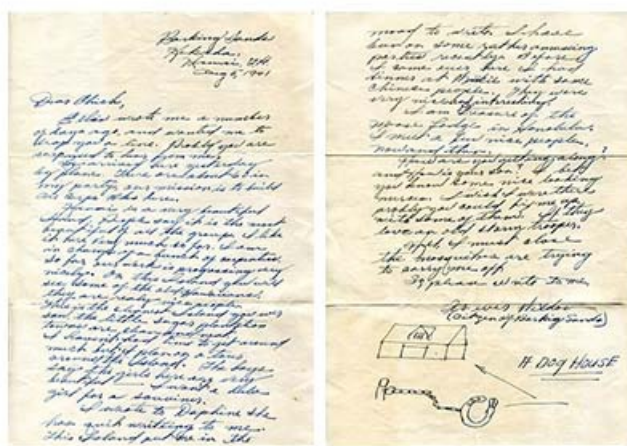 Barking Sands
Kekaha,
Kauai, T.H.
Aug 5, 1941
Dear Chick,
wrote me a number
of days ago, and wanted me to
drop you a line. Probly you are
surprised to hear from me.
We arrived here yesterday
by plane. There are about 60 in
my party, our mission is to build
an air base here.
Kauai is a very beautiful
Island. People say it is the most
beautiful of all the group. I like
it here very much so far. I am
in charge of a bunch of carpenters
so far our work is progressing very
nicely. On this Island you will
see some of the old Hawaiians.
They are really nice people.
This is the cleanest Island you ever
saw, the little sugar plantation
towns are clean and neat.
I haven't had time to get around
much but I plan on a tour
around the Island. The boys
say the girls here are very
beautiful — I want a hula
girl for a souvenir.
I wrote to Daphine she
has quit writing to me.
This Island put me in the
mood to write. I have
been on some rather amusing
parties recently. Before
I came over here I had
dinner at with some
Chinese people. They were
very nice and interesting.
I am of the
Moose Lodge in Honolulu
I meet a few nice people,
now and then.
How are you getting along
and how is your son? I bet
you know some nice looking
nurses. I wish I were there
probly you could fix me up
with some of them. If they
love an old storm trooper.
Well, I must close
the mosquitoes are trying
to carry me off.
So please write to me.
Wilder
(Citizen of Barking Sands)
A DOG HOUSE